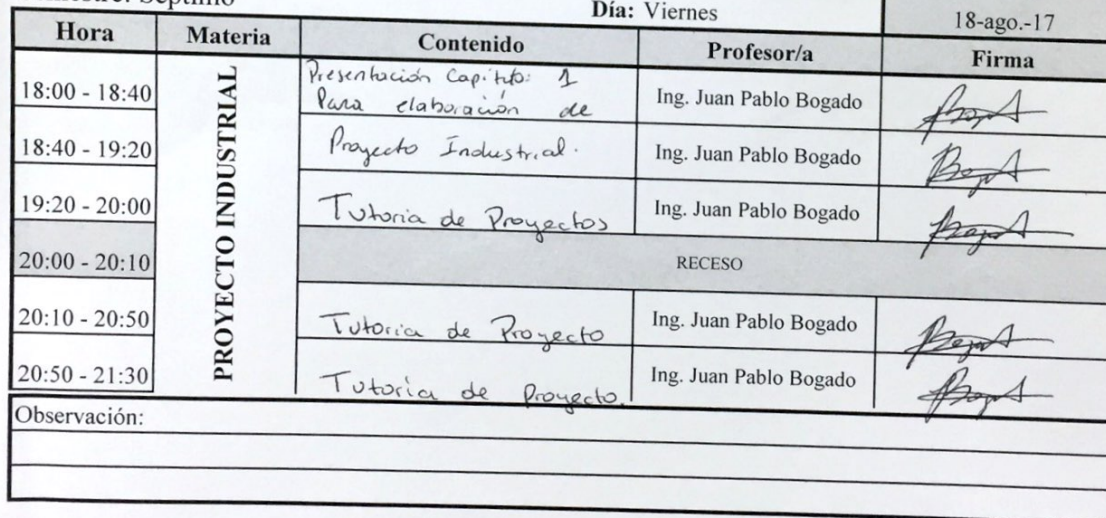 Séptimo
Día: Viernes
18-ago.-17
Hora Materia Contenido Profesor/a Firma
PROYECTO INDUSTRIAL
18:00 - 18:40 Presentación Capítulo: 1 Ing. Juan Pablo Bogado
Para elaboración de
18:40 - 19:20 Proyecto Industrial. Ing. Juan Pablo Bogado
19:20 - 20:00 Tutoria de Proyectos Ing. Juan Pablo Bogado
20:00 - 20:10 RECESO
20:10 - 20:50 Tutoria de Proyecto Ing. Juan Pablo Bogado
20:50 - 21:30 Tutoria de Proyecto. Ing. Juan Pablo Bogado
Observación: